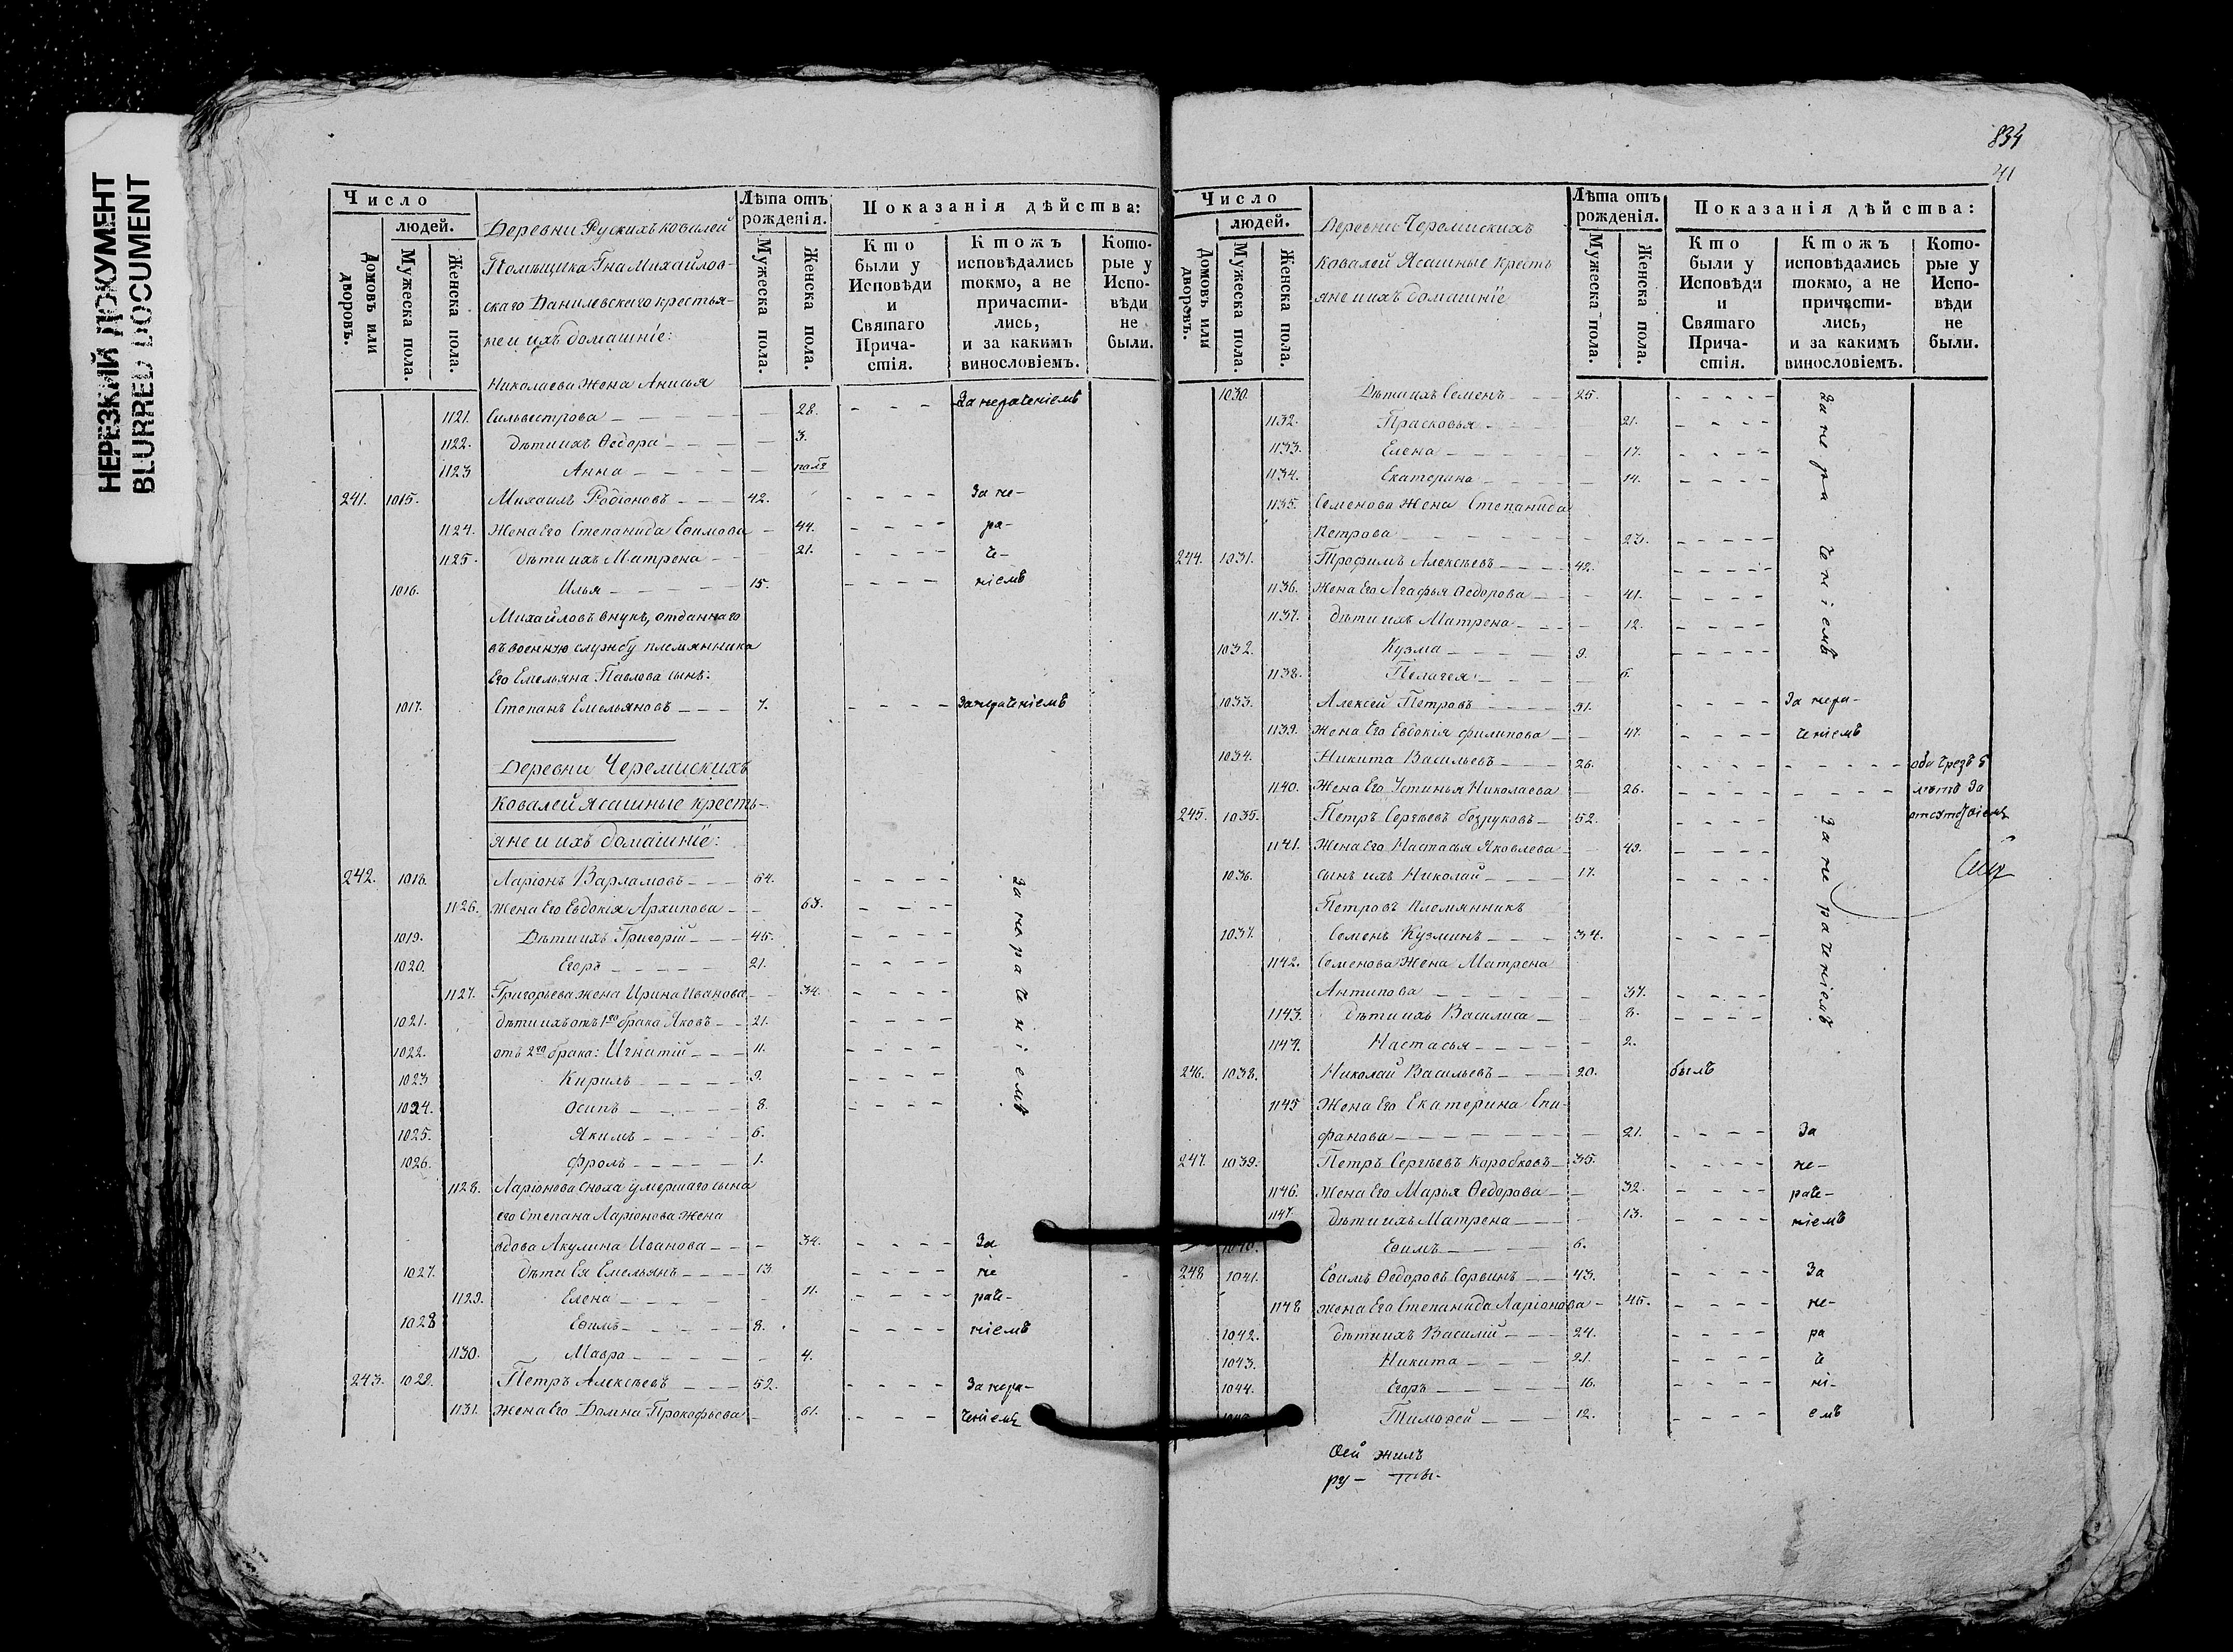 НЕРЕЗКИЙ ДОКУМЕНТ
BLURRED DOCUMENT
Число
людей.
Домовъ или дворовъ.
Мужеска пола.
Женска пола.
Деревни Рускихъ ковалей
Помѣщика Гна Михайлов-
скаго Данилевскаго крестья-
не и ихъ домашнїе:
Лѣта отъ рожденія.
Мужеска пола.
Женска пола.
Показанія дѣйства:
Кто были у Исповѣди и Святаго Причастія.
Ктожъ исповѣдались токмо, а не причастились, и за какимъ винословіемъ.
Которые у Исповѣди не были.
Николаева жена Анисья
1121. Сильвестрова — — — — — 28. - - - За нераченіемъ
1122. Дѣти ихъ Ѳедора — — — — 3.
1123 Анна — — — — — — пол
241. 1015. Михаилъ Родіоновъ — — — 42. - - - - За не-
1124. Жена его Степанида Ефимова — 44. - - - - ра-
1125. Дѣти ихъ Матрена — — 21. - - - - че-
1016. Илья — — — — 15. - - - - ніемъ
Михайловъ внукъ, отданнаго
въ военную службу племянника
его Емельяна Павлова сынъ:
1017. Степанъ Емельяновъ — — — 7. - - - - За нераченіемъ
Деревни Черемискихъ
Ковалей ясашные кресть-
яне и ихъ домашніе:
242. 1018. Ларіонъ Варламовъ — — — 64. - - - - За нераченіемъ
1126. Жена его Евдокія Архипова — — 63. - - - -
1019. Дѣти ихъ Григорій — — — 45. - - - -
1020. Егоръ — — — — 21. - - - -
1127. Григорьева жена Ирина Иванова — — 34. - - - -
1021. дѣти ихъ отъ 1го брака Яковъ — — 21. - - - -
1022. отъ 2го брака: Игнатій — — — 11. - - - -
1023 Кирилъ — — — — — 9. - - - -
1024. Осипъ — — — — — 8. - - - -
1025. Якимъ — — — — 6. - - - -
1026. Фролъ — — — — 1. - - - -
1128. Ларіонова сноха умершаго сына
его Степана Ларіонова жена
вдова Акулина Иванова — — — 34. - - - - За
1027. Дѣти Ея Емельянъ — — — — 13 - - - - не
1129. Елена — — — — — 11. - - - - раче-
1028 Ефимъ — — — — 8. - - - - ніемъ
1130. Мавра — — — — — — 4.
243. 1029. Петръ Алексѣевъ — — — 52. - - - - За нера-
1131. Жена его Домна Прокофьева — 61. - - - - ченіемъ
834
41
Число
людей.
Домовъ или дворовъ.
Мужеска пола.
Женска пола.
Деревни Черемискихъ
Ковалей Ясашные кресть
яне и ихъ домашніе
Лѣта отъ рожденія.
Мужеска пола.
Женска пола.
Показанія дѣйства:
Кто были у Исповѣди и Святаго Причастія.
Ктожъ исповѣдались токмо, а не причастились, и за какимъ винословіемъ.
Которые у Исповѣди не были.
1030. Дѣти ихъ Семенъ — — 25. - - - - - За нераченіемъ
1132. Прасковья — — — — 21. - - - -
1133. Елена — — — — — — 17. - - - -
1134. Екатерина — — — — 14. - - - -
1135. Семенова жена Степанида
Петрова — — — — — — — 23. - - - - -
244. 1031. Трофимъ Алексѣевъ — — — — 42. - - - - -
1136. Жена его Агафья Ѳедорова — — — 41. - - - -
1137. дѣти ихъ Матрена — — — — 12. - - - -
1032. Кузма — — — — — 9. - - - - -
1138. Пелагея — — — — 6.
1033. Алексѣй Петровъ — — — — 51. - - - - За нера-
1139. Жена его Евдокія Филипова — — 47. - - - - ченіемъ
1034. Никита Васильевъ — — — — 26. - - - - - - - - - оба чрезъ 5
1140. Жена его Устинья Николаева — 26. - - - - - - - - - лѣтъ за
245. 1035. Петръ Сергѣевъ безруковъ — 52. - - - - За нераченіемъ отсутствіемъ
1141. Жена его Настасья Яковлева — 49. - - - -
1036. сынъ ихъ Николай — — — — 17. - - - -
Петровъ племянникъ
1037. Семенъ Кузминъ — — — 34. - - - -
1142. Семенова жена Матрена
Антипова — — — — — — — 37. - - - -
1143. дѣти ихъ Василиса — — 8. - - - -
1144. Настасья — — — — — 2.
246. 1038. Николай Васильевъ — — — 20. былъ
1145 Жена его Екатерина Епи-
фанова — — — — — — — — 21. - - - - За
247. 1039. Петръ Сергѣевъ Коробковъ — 35. - - - - не-
1146. Жена его Марья Ѳедорова — — 32. - - - - раче-
1147. дѣти ихъ Матрена — — — — 13. - - - - ніемъ
1040. Ефимъ — — — — 6.
248 1041. Ефимъ Ѳедоровъ Сорвинъ — — 43. - - - - За
1148 Жена его Степанида Ларіонова — 45. - - - - не-
1042. дѣти ихъ Василій — — — 24. - - - - ра
1043. Никита — — — 21. - - - - че
1044. Егоръ — — — — 16. - - - - ні-
Тимофей — — — 12. - - - - емъ